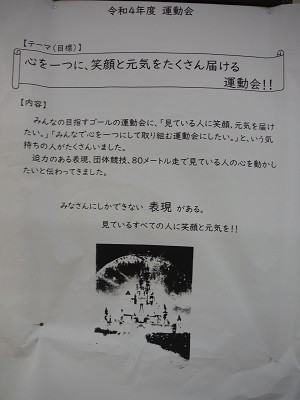 令和4年度 運動会
【テーマ(目標)】
心を一つに、笑顔と元気をたくさん届ける
運動会!!
【内容】
みんなの目指すゴールの運動会に、「見ている人に笑顔、元気を届け
たい。」「みんなで心を一つにして取り組む運動会にしたい。」と、いう気
持ちの人がたくさんいました。
迫力のある表現、団体競技、80メートル走で見ている人の心を動かし
たいと伝わってきました。
みなさんにしかできない 表現 がある。
見ているすべての人に笑顔と元気を!!